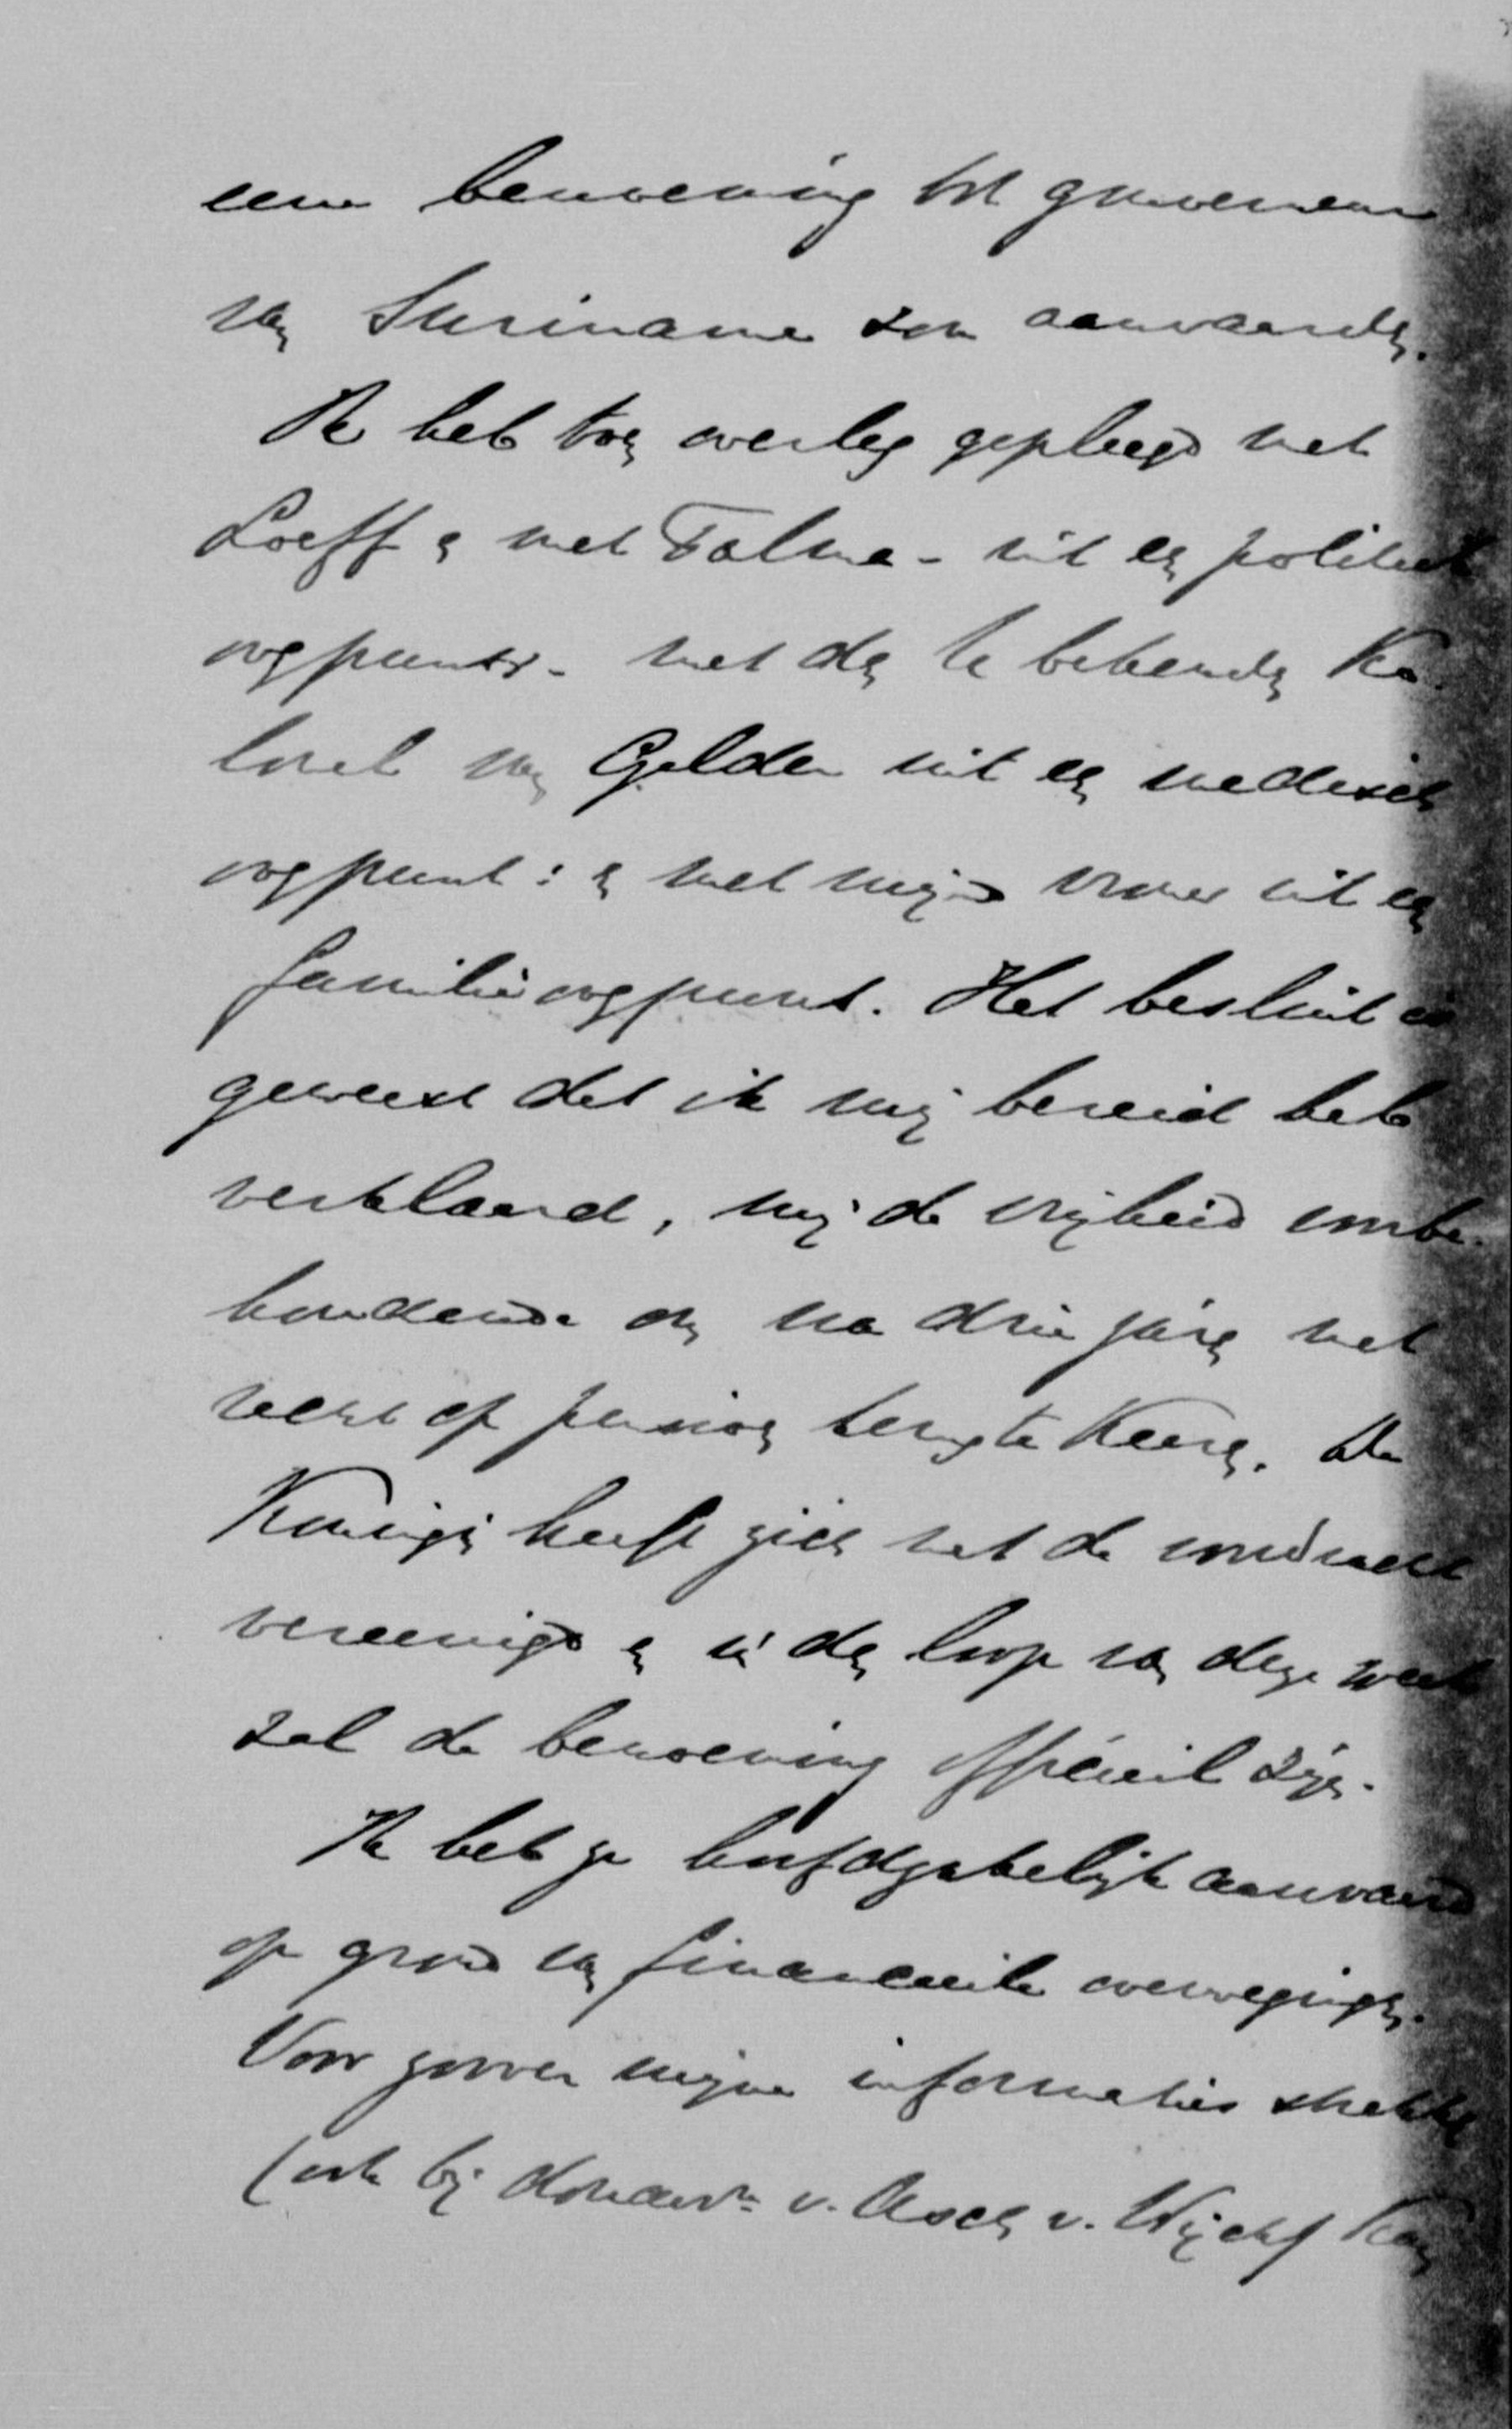 eene benoeming tot gouverneur
van Suriname zou aanvaarden.
Ik heb toen overleg gepleegd met
Loeff en met Talma - uit een politiek
oogpunt - met den U bekenden Ko-
lonel van Gelder uit een medisch
oogpunt: en met mijne vrouw uit een
familieoogpunt. Het besluit is
geweest dat ik mij bereid heb
verklaard, mij de vrijheid voorbe-
houdende om na drie jaren met
recht op pensioen terug te keeren. De
Koningin heeft zich met de voordracht
vereenigd en in den loop van deze week
zal de benoeming officieel zijn.
Ik heb ze hoofdzakelijk aanvaard
op grond van financieele overwegingen.
Voor zoover mijne informaties strekken
(ook bij v. Asch v. Wijck)